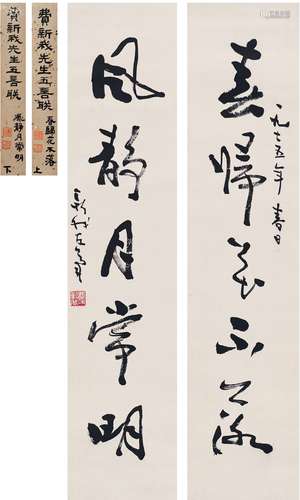 春歸花不落
一九七五年春日
風靜月常明
新我左筆
費新我先生五言聯 春歸花不落 上
費新我先生五言聯 風靜月常明 下